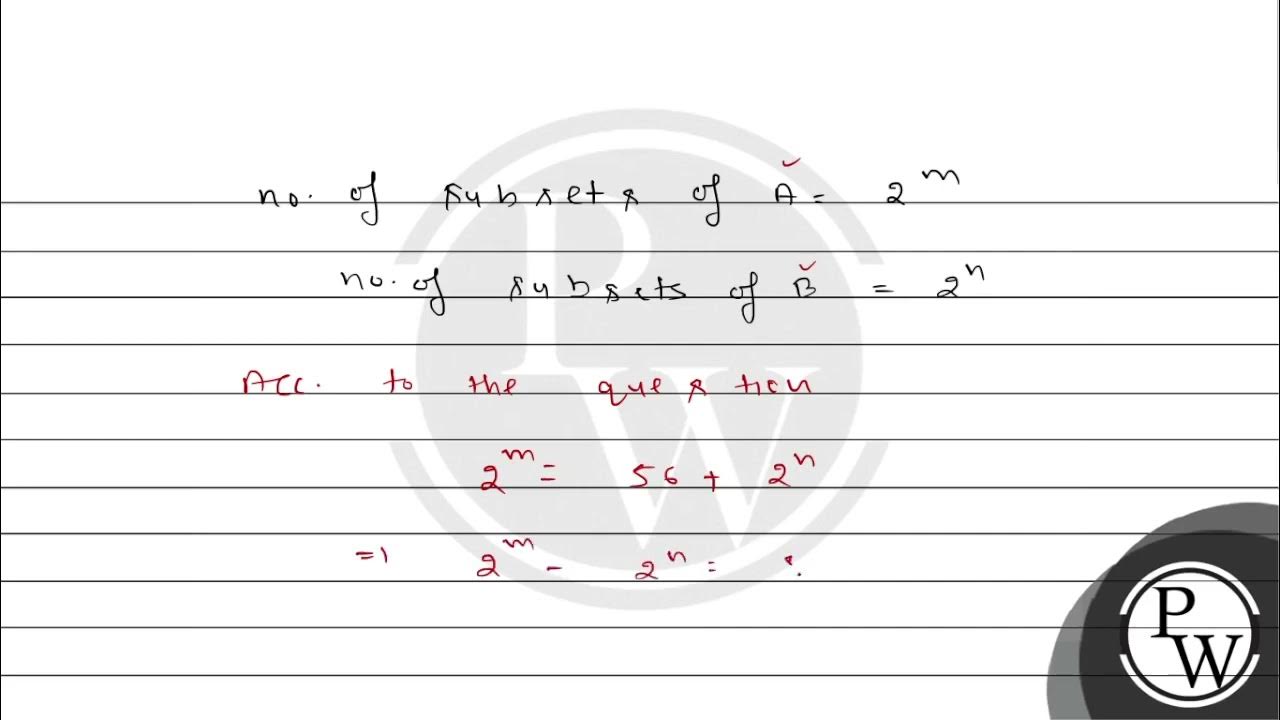 no. of subsets of A = 2^m
no. of subsets of B = 2^n
Acc. to the question
2^m = 56 + 2^n
⇒ 2^m - 2^n =
P
W
P
W